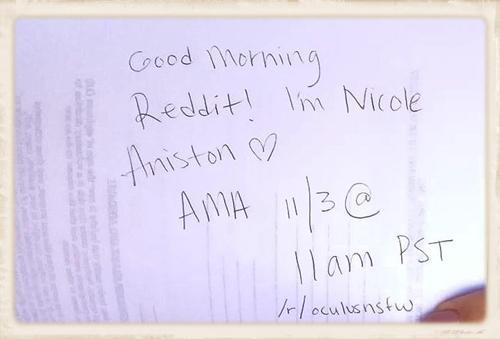 Good Morning
Reddit! I'm Nicole
Aniston ♡
AMA 11/3 @
11am PST
/r/oculusnsfw